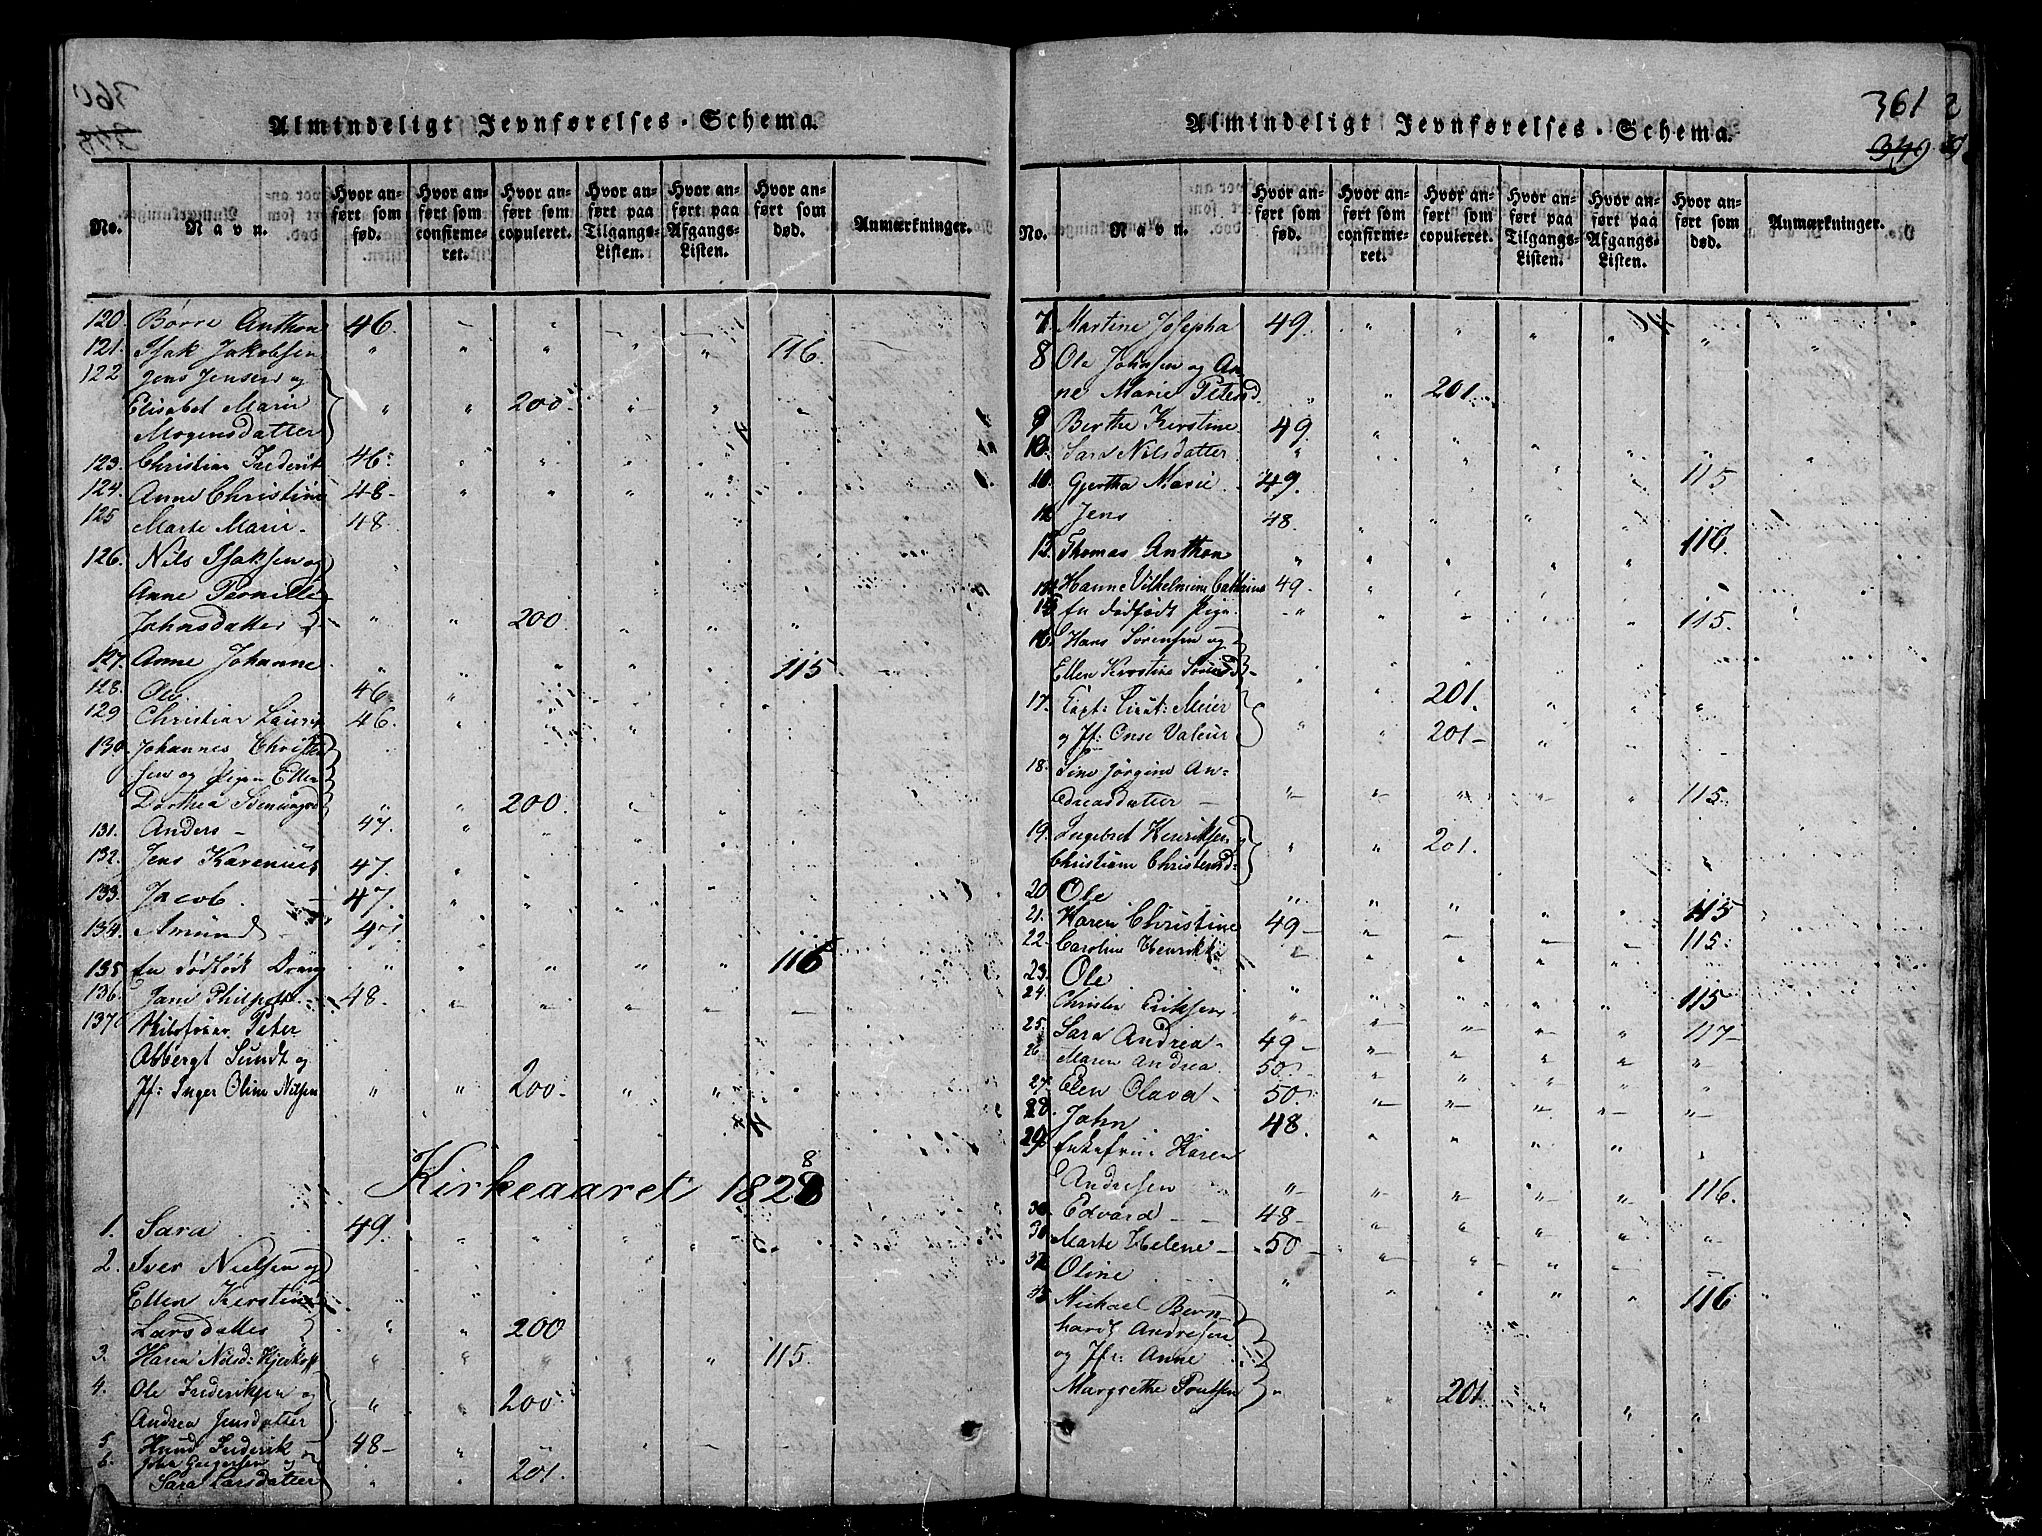 360
348
Almindeligt Jevnførelses-Schema.
No. Navn. Hvor anført som fød. Hvor anført som confirmeret. Hvor anført som copuleret. Hvor anført paa Tilgangs-Listen. Hvor anført paa Afgangs-Listen. Hvor anført som død. Anmærkninger.
120 Børre Anthon 46. " " " " "
121. Isak Jakobsen " " " " " 116.
122 Jens Jensen og
Elisabet Marie " " 200. " " "
Mogensdatter
123. Christian Frederik 46. " " " " "
124. Anne Christine 48 - " " " " "
125 Marte Marie - 48.
126. Nils Isaksen og
Anne Pernille
Johnsdatter " " 200. " " "
127. Anne Johanne " " " " " 115
128. Ole. 46
129 Christian Lauriz 46.
130. Johannes Christen
sen og Pigen Ellen
Dorthea " " 200. " "
131. Anders - 47.
132. Jens Karenius 47.
133. Jacob. - 47.
134. Amund - 47.
135 En dødfødt Dreng " " " " " 116
136. Jane 48.
137 Peter
Asbergt Sundt og
Jf: Inger Oline Nilsen " " 200. " " "
Kirkeaaret 1828
8
1. Sara 49.
2. Iver Nielsen og
Ellen Kerstine
Larsdatter " " 200
3. Karen Nilsd: " " " " " 115.
4. Ole Frederiksen og " " 200.
Andrea Jensdatter
5. Knud Frederik 48 -
6. John Gregersen og
Sara Larsdatter " " 201.
361
349
Almindeligt Jevnførelses-Schema.
No. Navn. Hvor anført som fød. Hvor anført som confirmeret. Hvor anført som copuleret. Hvor anført paa Tilgangs-Listen. Hvor anført paa Afgangs-Listen. Hvor anført som død. Anmærkninger.
7. Martine Josepha 49. " " " " "
8 Ole Johnsen og An-
ne Marie Petersd. " " 201.
9 Berthe Kerstine. 49.
10. Sara Nilsdatter " " " " " 115
11. Gjertha Marie 49.
12 Jens 48.
13. Thomas Anthon " " " " " 116.
14. Hanne Vilhelmine Cathrine 49
15 En dødfødt Pige " " " " " 115.
16. Hans Sørensen og
Ellen Kerstine Sørensd. " " 201.
17. Capt: Lieut: Meier
og Jf: Onse Valeur " " 201 -
18. Line Jørgine An-
dreasdatter - " " " " " 115.
19. Ingebret Henriksen
Christiane Christensd: " " 201.
20. Ole " " " " " 115
21. Karen Christine 49 -
22. Caroline Henrikke " " " " " 115.
23. Ole " " " " " 115
24. Christen Eriksen " " " " " 117 -
25. Sara Andrea - 49 -
26 Maren Andrea 50. -
27. Elen Olava - 50.
28. John 48.
29. Enkefrue Karen
Andresen " " " " " 116.
30. Edvard 48 -
30. Marte Helene - 50 -
32. Oline " " " " " 116
33. Michael Bern
hard Andresen
og Jfr: Anne
Margrethe Poulsen " " 201.